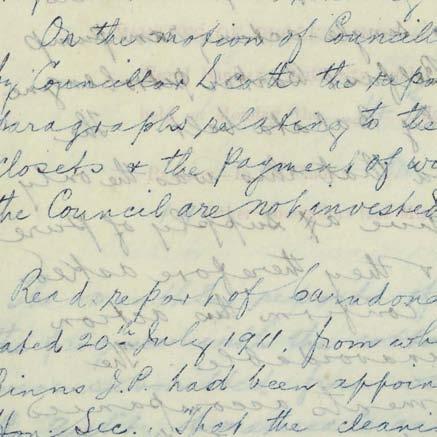 On the motion of Councill
by Councillor Scott the repo
paragraphs relating to the
Closets & the Payment of w
the Council are not invested
Read report of
ated 20th July 1911. from wh
Binns J.P. had been appoin
Hon. Sec. That the cleani